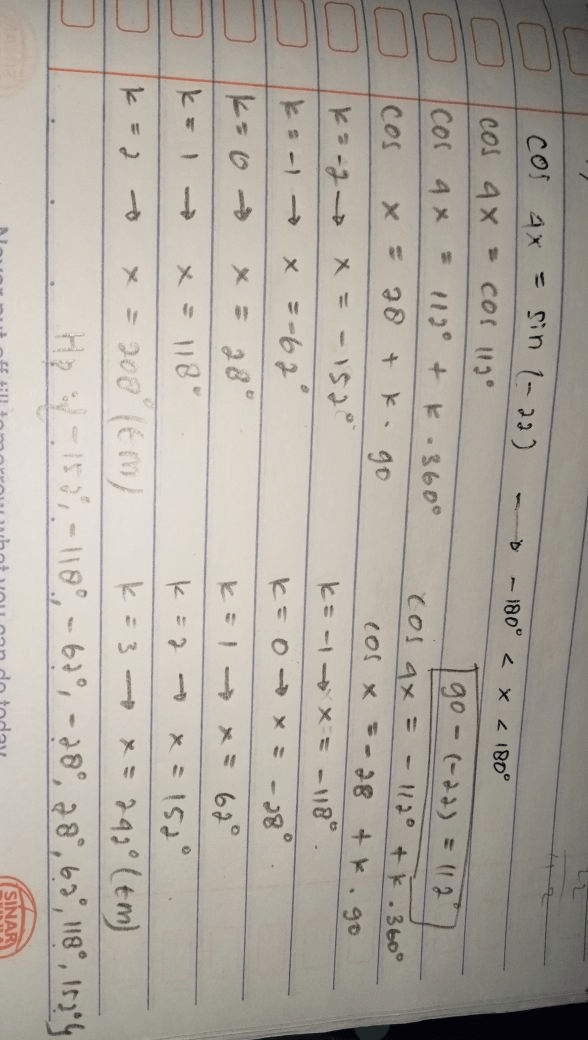 cos 4x = sin (-22) → -180° < x < 180°
cos 4x = cos 112°
90 - (-22) = 112°
cos 4x = 112° + k . 360°
cos x = 28 + k . 90
k = -2 → x = -152°
k = -1 → x = -62°
k = 0 → x = 28°
k = 1 → x = 118°
k = 2 → x = 208° (tm)
cos 4x = -112° + k . 360°
cos x = -28 + k . 90
k = -1 → x = -118°
k = 0 → x = -28°
k = 1 → x = 62°
k = 2 → x = 152°
k = 3 → x = 242° (tm)
Hp : {-152°, -118°, -62°, -28°, 28°, 62°, 118°, 152°}
SINAR